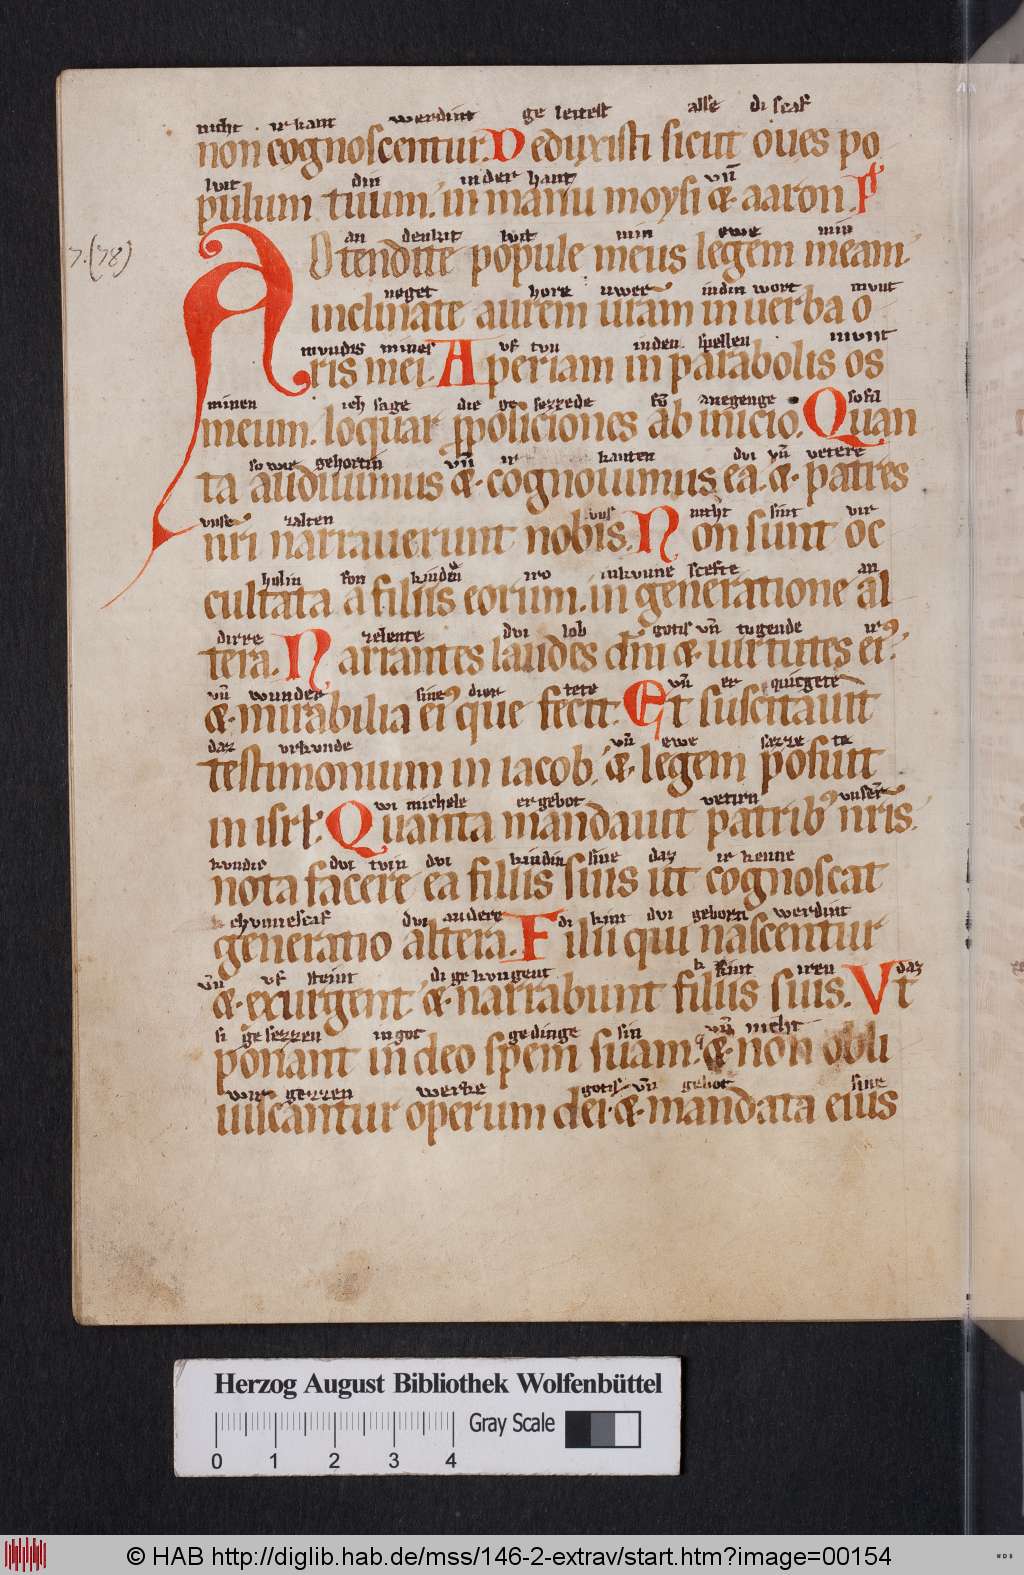 nicht irkant werdint ge leitest alse di scaf
non cognoscentur. Deduxisti sicut oues po
luit din in der hant vn̄
pulum tuum. in manu moysi & aaron. Ps
an denkit luit min ewe min
ADtendite popule meus legem meam.
neget hore uwer indin wort mvnt
inclinate aurem ur̄am in uerba o
mvndis mines vf tvn inden spellen minnt
ris mei. Aperiam in parabolis os
minen ich sage die ge sezzede fō anegenge
meum. loquar ꝓpoliciones ab inicio. Quan
so wie gehortin vn̄ ir kanten dvi vn̄ vetere
ta audiuimus & cognouimus ea. & patres
vnse zalten vns nicht sint vir
nr̄i narrauerunt nobis. Non sunt oc
holin fon kinden an
cultata a filiis eorum. in generatione al
dirre zelente dvi lob gotis vn̄ tugende ir
tera. Narrantes laudes dn̄i & uirtutes ei⁹.
vn̄ wunder sine tete vn̄ er quicgete
& mirabilia ei⁹ que fecit. Et suscitauit
daz virkunde vn̄ ewe sazze te
testimonium in iacob. & legem posuit
wi michele er gebot vetirn vnser
in isrl. Quanta mandauit patrib⁹ nr̄is.
kvndis dvi tvin dvi kindin sine daz ir kenne
nota facere ea filiis suis ut cognoscat
chvnnescaf dvi andere di kint dvi geborn werdint
generatio altera. Filii qui nascentur
vn̄ vf steint kint iren daz
& exurgent & narrabunt filiis suis. Vt
si ge sezzen in got gedinge sin vn̄ nicht
ponant in deo spem suam. & non obli
werke gotis vn̄ gebot sine
uiscantur operum dei. & mandata eius
7.(78)
Herzog August Bibliothek Wolfenbüttel
Gray Scale
0 1 2 3 4
© HAB http://diglib.hab.de/mss/146-2-extrav/start.htm?image=00154